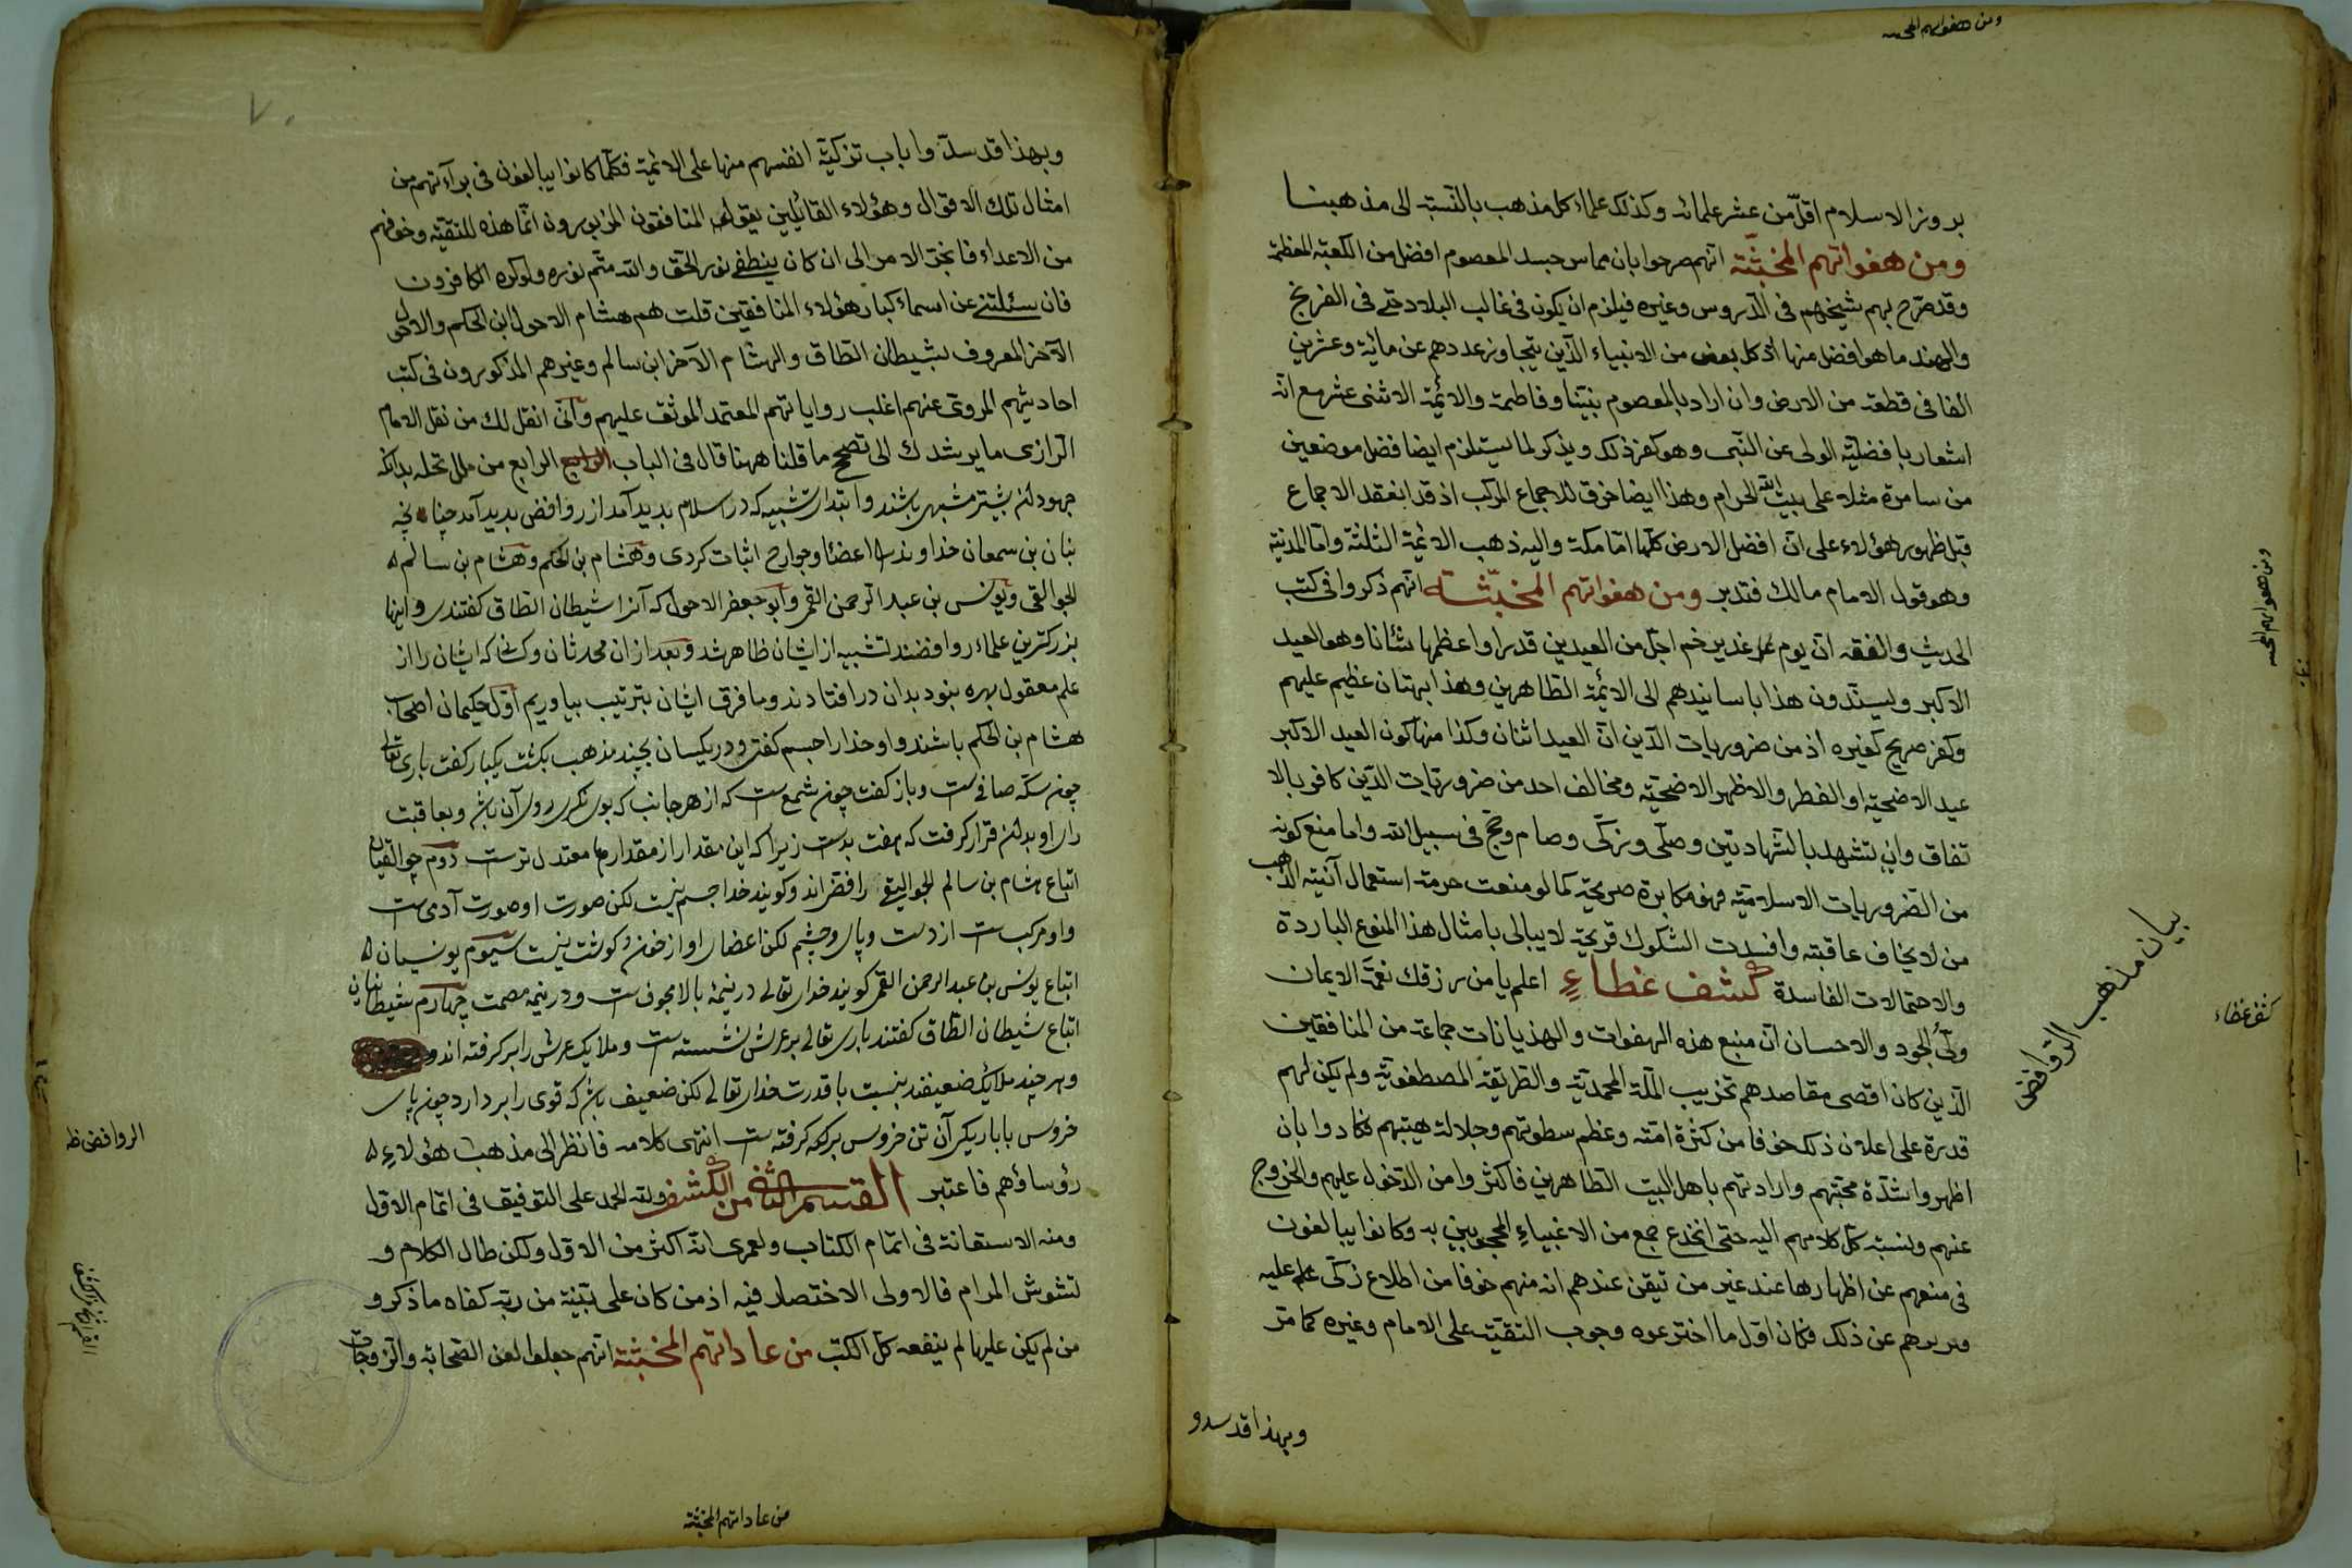 ومن هفواتهم المخبثة
بروز الاسلام اقل من عشر علمائه وكذلك علماء كل مذهب بالنسبة الى مذهبنا
ومن هفواتهم المخبثة انهم صرحوا بان مماس جسد المعصوم افضل من الكعبة المعظمة
وقد صرح بهم شيخهم فى الدروس وغيره فيلزم ان يكون فى غالب البلاد حتى فى الفرنج
والهند ما هو افضل منها اذ كل بعض من الانبياء الذين يتجاوز عددهم عن مائة وعشرين
الفا فى قطعة من الارض وان اراد بالمعصوم نبينا وفاطمة والائمة الاثنى عشر مع انه
اشعار بافضلية الولى عن النبى وهو كفر ذلك ويذكر لما يستلزم ايضا فضل موضعين
من سامرة مثلا على بيت الله الحرام وهذا ايضا خرق للاجماع المركب اذ قد انعقد الاجماع
قبل ظهور هؤلاء على ان افضل الارض كلها اما مكة واليه ذهب الائمة الثلثة واما المدينة
وهو قول الامام مالك فتدبر ومن هفواتهم المخبثة انهم ذكروا فى كتب
الحديث والفقه ان يوم غدير خم اجل من العيدين قدرا واعظمها شانا وهو العيد
الاكبر ويسندون هذا باسانيدهم الى الائمة الطاهرين وهذا بهتان عظيم عليهم
وكفر صريح كغيره اذ من ضروريات الدين ان العيد اثنان وكذا منها كون العيد الاكبر
عيد الاضحية او الفطر والاظهر الاضحية ومخالف احد من ضروريات الدين كافر بالا
تفاق وان تشهد بالشهادتين وصلى وزكى وصام وحج فى سبيل الله واما منع كونه
من الضروريات الاسلامية فهو مكابرة صريحة كما لو منعت حرمة استعمال آنية الذهب
من لا يخاف عاقبته وافسدت الشكوك قريحته لا يبالى بامثال هذا المنوع الباردة
والاحتمالات الفاسدة كشف غطاء اعلم يا من رزقك نعمة الايمان
ولى الجود والاحسان ان منبع هذه الهفوات والهذيانات جماعة من المنافقين
الذين كان اقصى مقاصدهم تخريب الملة المحمدية والطريقة المصطفوية ولم يكن لهم
قدرة على اعلان ذلك خوفا من كثرة امته وعظم سطوتهم وجلالة هيبتهم فكادوا بان
اظهروا شدة محبتهم وارادتهم باهل البيت الطاهرين فاكثروا من الدخول عليهم والخروج
عنهم ونسبة كل كلامهم اليه حتى انخدع جمع من الاغبياء المحجوبين به وكانوا يبالغون
فى منعهم عن اظهارها عند غير من تيقن عندهم انه منهم خوفا من اطلاع زكى عليه
وبربرهم عن ذلك فكان اول ما اخترعوه وجوب التقية على الامام وغيره كما مر
وبهذا قد سدو
ومن هفواتهم المخبثة
كشف غطاء
بيان مذهب الروافض
٧٠
وبهذا قد سدوا باب تزكية انفسهم منها على الائمة فكلما كانوا يبالغون فى برآءتهم من
امثال تلك الاقوال وهؤلاء القائلين يقول المنافقون المزبورون انما هذه للتقية وخوفهم
من الاعداء فانجر الامر الى ان كان ينطفى نور الحق والله متم نوره ولو كره الكافرون
فان سئلتنى عن اسماء كبار هؤلاء المنافقين قلت هم هشام الاحول ابن الحكم والاحول
الآخر المعروف بشيطان الطاق والهشام الآخر ابن سالم وغيرهم المذكورون فى كتب
احاديثهم المروى عنهم اغلب رواياتهم المعتمد الموثق عليهم وانى انقل لك من نقل الامام
الرازى ما يرشدك الى تصحيح ما قلنا ههنا قال فى الباب الرابع الرابع من ملل نحله بدانكه
جهودان بيشتر مشبهى باشند وابتداى تشبيه كه در اسلام بديد آمد از روافض بديد آمد چنانچه
بنان بن سمعان خداوند را اعضا وجوارح اثبات كردى وهشام بن الحكم وهشام بن سالم
الجوالقى ويونس بن عبد الرحمن القمى وابو جعفر الاحول كه آنرا شيطان الطاق گفتندى واينها
بزرگترين علماء روافضند تشبيه از ايشان ظاهر شد وبعد از ان محدثان وكسانى كه ايشان را از
علم معقول بهره نبود بدان در افتادند وما فرق ايشان بترتيب بياوريم اول حكيمان اصحاب
هشام بن الحكم باشند واو خدا را جسم گفتى ودر يكسان بچند مذهب بگشت يكبار گفت بارى تعالى
چون سكه صافى است وباز گفت چون شمع است كه از هر جانب كه بوى نگرى روى آن باشد وبعاقبت
راى او بدان قرار گرفت كه هفت بدست زيرا كه اين مقدار از مقدارها معتدل ترست دوم جوالقيان
اتباع هشام بن سالم الجواليقى رافضى اند وگويند خدا جسم نيست لكن صورت او صورت آدمى است
واو مركب است از دست وپاى وچشم لكن اعضاى او از خون وگوشت نيست سيوم يونسيان
اتباع يونس بن عبد الرحمن القمى گويند خداى تعالى در نيمه بالا مجوف است ودر نيمه مصمت چهارم شيطانيان
اتباع شيطان الطاق گفتند بارى تعالى بر عرش نشسته است وملايك عرش را بر گرفته اند
وهر چند ملايك ضعيفند بنسبت با قدرت خداى تعالى لكن ضعيف باشد كه قوى را بر دارد چون پاى
خروس با باريكى آن تن خروس بر گرفته است انتهى كلامه فانظر الى مذهب هؤلاء
رؤساؤهم فاعتبر القسم الثانى من الكشف ولله الحمد على التوفيق فى اتمام الاول
ومنه الاستعانة فى اتمام الكتاب ولعمرى انه اكثر من الاول ولكن طال الكلام و
لتشوش المرام فالاولى الاختصار فيه اذ من كان على بينة من ربه كفاه ما ذكر و
من لم يكن عليها لم ينفعه كل الكتب من عاداتهم المخبثة انهم جعلوا لعن الصحابة والزوجات
الروافض ظ
من عاداتهم المخبثة